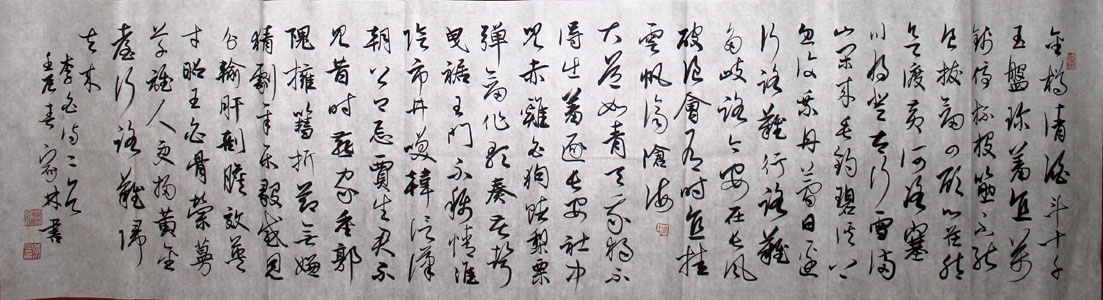 金樽清酒斗十千
玉盤珍羞直萬
錢停杯投箸不能
食拔劍四顧心茫然
欲渡黃河冰塞
川將登太行雪滿
山閑來垂釣碧溪上
忽復乘舟夢日邊
行路難行路難
多歧路今安在長風
破浪會有時直掛
雲帆濟滄海
大道如青天我獨不
得出羞逐長安社中
兒赤雞白狗賭梨栗
彈劍作歌奏苦聲
曳裾王門不稱情淮
陰市井笑韓信漢
朝公卿忌賈生君不
見昔時燕家重郭
隗擁篲折節無嫌
猜劇辛樂毅感恩
分輸肝剖膽效英
才昭王白骨縈蔓
草誰人更掃黃金
臺行路難歸
去來
李白詩二首
壬辰春家林書